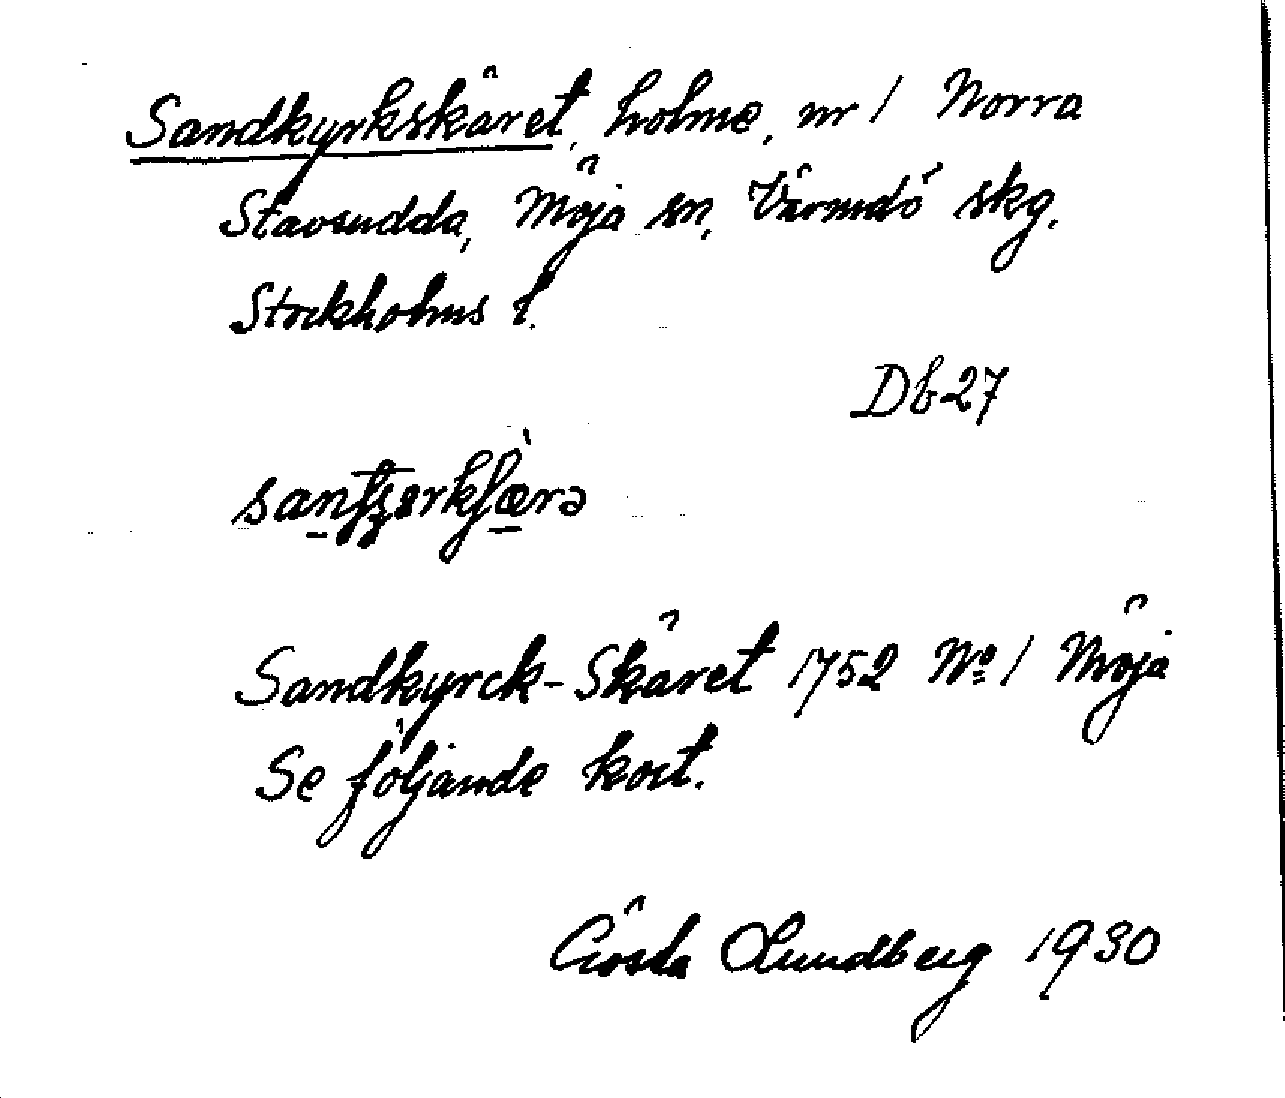 Sandkyrkskäret, holme, nr 1 Norra
Stavsudda, Möja sn, Värmdö skg.
Stockholms l.
Db 27
Sandkyrck-Skäret 1752 No 1 Möja
Se följande kort.
Gösta Lundberg 1930